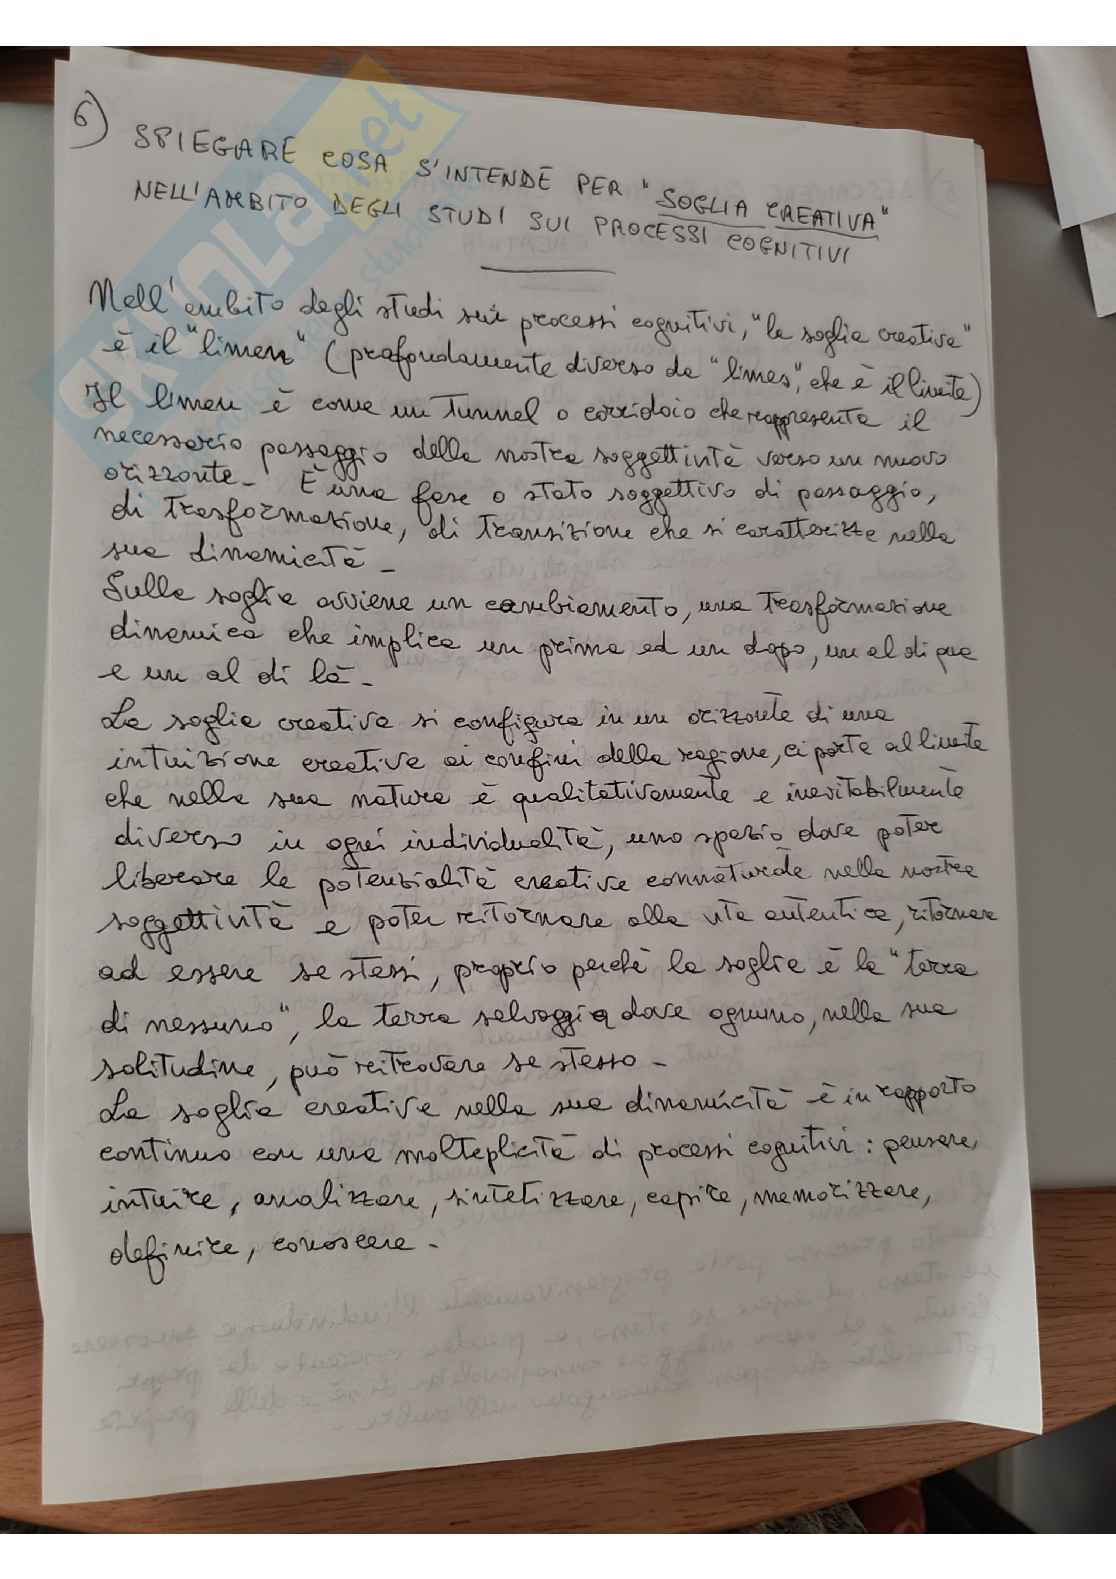 6)
SPIEGARE COSA S'INTENDE PER "SOGLIA CREATIVA"
NELL'AMBITO DEGLI STUDI SUI PROCESSI COGNITIVI
Nell'ambito degli studi sui processi cognitivi, "la soglia creativa"
è il "limen" (profondamente diverso da "limes", che è il limite)
Il limen è come un tunnel o corridoio che rappresenta il
necessario passaggio della nostra soggettività verso un nuovo
orizzonte- È una fase o stato soggettivo di passaggio,
di trasformazione, di transizione che si caratterizza nella
sua dinamicità -
Sulla soglia avviene un cambiamento, una trasformazione
dinamica che implica un prima ed un dopo, un al di qua
e un al di là -
La soglia creativa si configura in un orizzonte di una
intuizione creativa ai confini della ragione, ci porta al limite
che nella sua natura è qualitativamente e inevitabilmente
diverso in ogni individualità, uno spazio dove poter
liberare le potenzialità creative connaturate nella nostra
soggettività e poter ritornare alla vita autentica, ritornare
ad essere se stessi, proprio perchè la soglia è la "terra
di nessuno", la terra selvaggia dove ognuno, nella sua
solitudine, può ritrovare se stesso -
La soglia creativa nella sua dinamicità è in rapporto
continuo con una molteplicità di processi cognitivi: pensare,
intuire, analizzare, sintetizzare, capire, memorizzare,
definire, conoscere -
SKUOLA.net